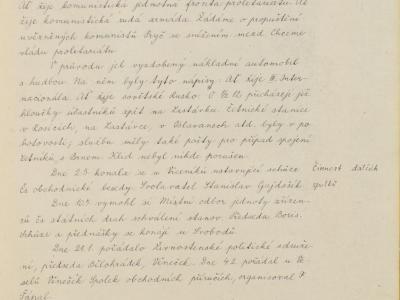 Ať žije komunistická jednotná fronta proletariátu. Ať
žije komunistická rudá armáda. Žádáme o propuštění
uvězněných komunistů. Pryč se snížením mezd. Chceme
vládu proletariátu.
V průvodu jel vyzdobený nákladní automobil
s hudbou. Na něm byly tyto nápisy: Ať žije III. Inter-
nacionála. Ať žije sovětské Rusko. O ½ 12. přicházejí již
hloučky účastníků zpět na Zastávku. Četnické stanice
v Rosicích, na Zastávce, v Oslavanech atd. byly v po-
hotovosti; službu měly také pošty pro případ spojení
četníků s Brnem. Klid nebyl nikde porušen.
Dne 2.3. konala se u Viceníků ustavující schůze
Čs obchodnické besedy. Svolavatel Stanislav Gajdošík.
Činnost dalších
spolků
Dne 10.3. vymohl si Místní odbor jednoty zřízen-
ců čs státních drah schválení stanov. Předseda Boris.
Schůze a přednášky se konají u Svobodů.
Dne 20.1. pořádalo Živnostenské politické sdruže-
ní, předseda Bělohrádek, Věneček. Dne 4.2. pořádal u Ve-
selů Věneček Spolek obchodních příručích, organisoval P.